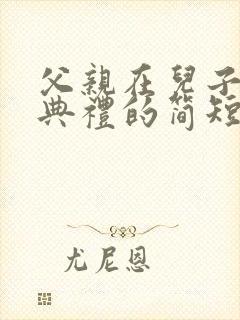 父親在兒子
典禮的简短
尤尼恩